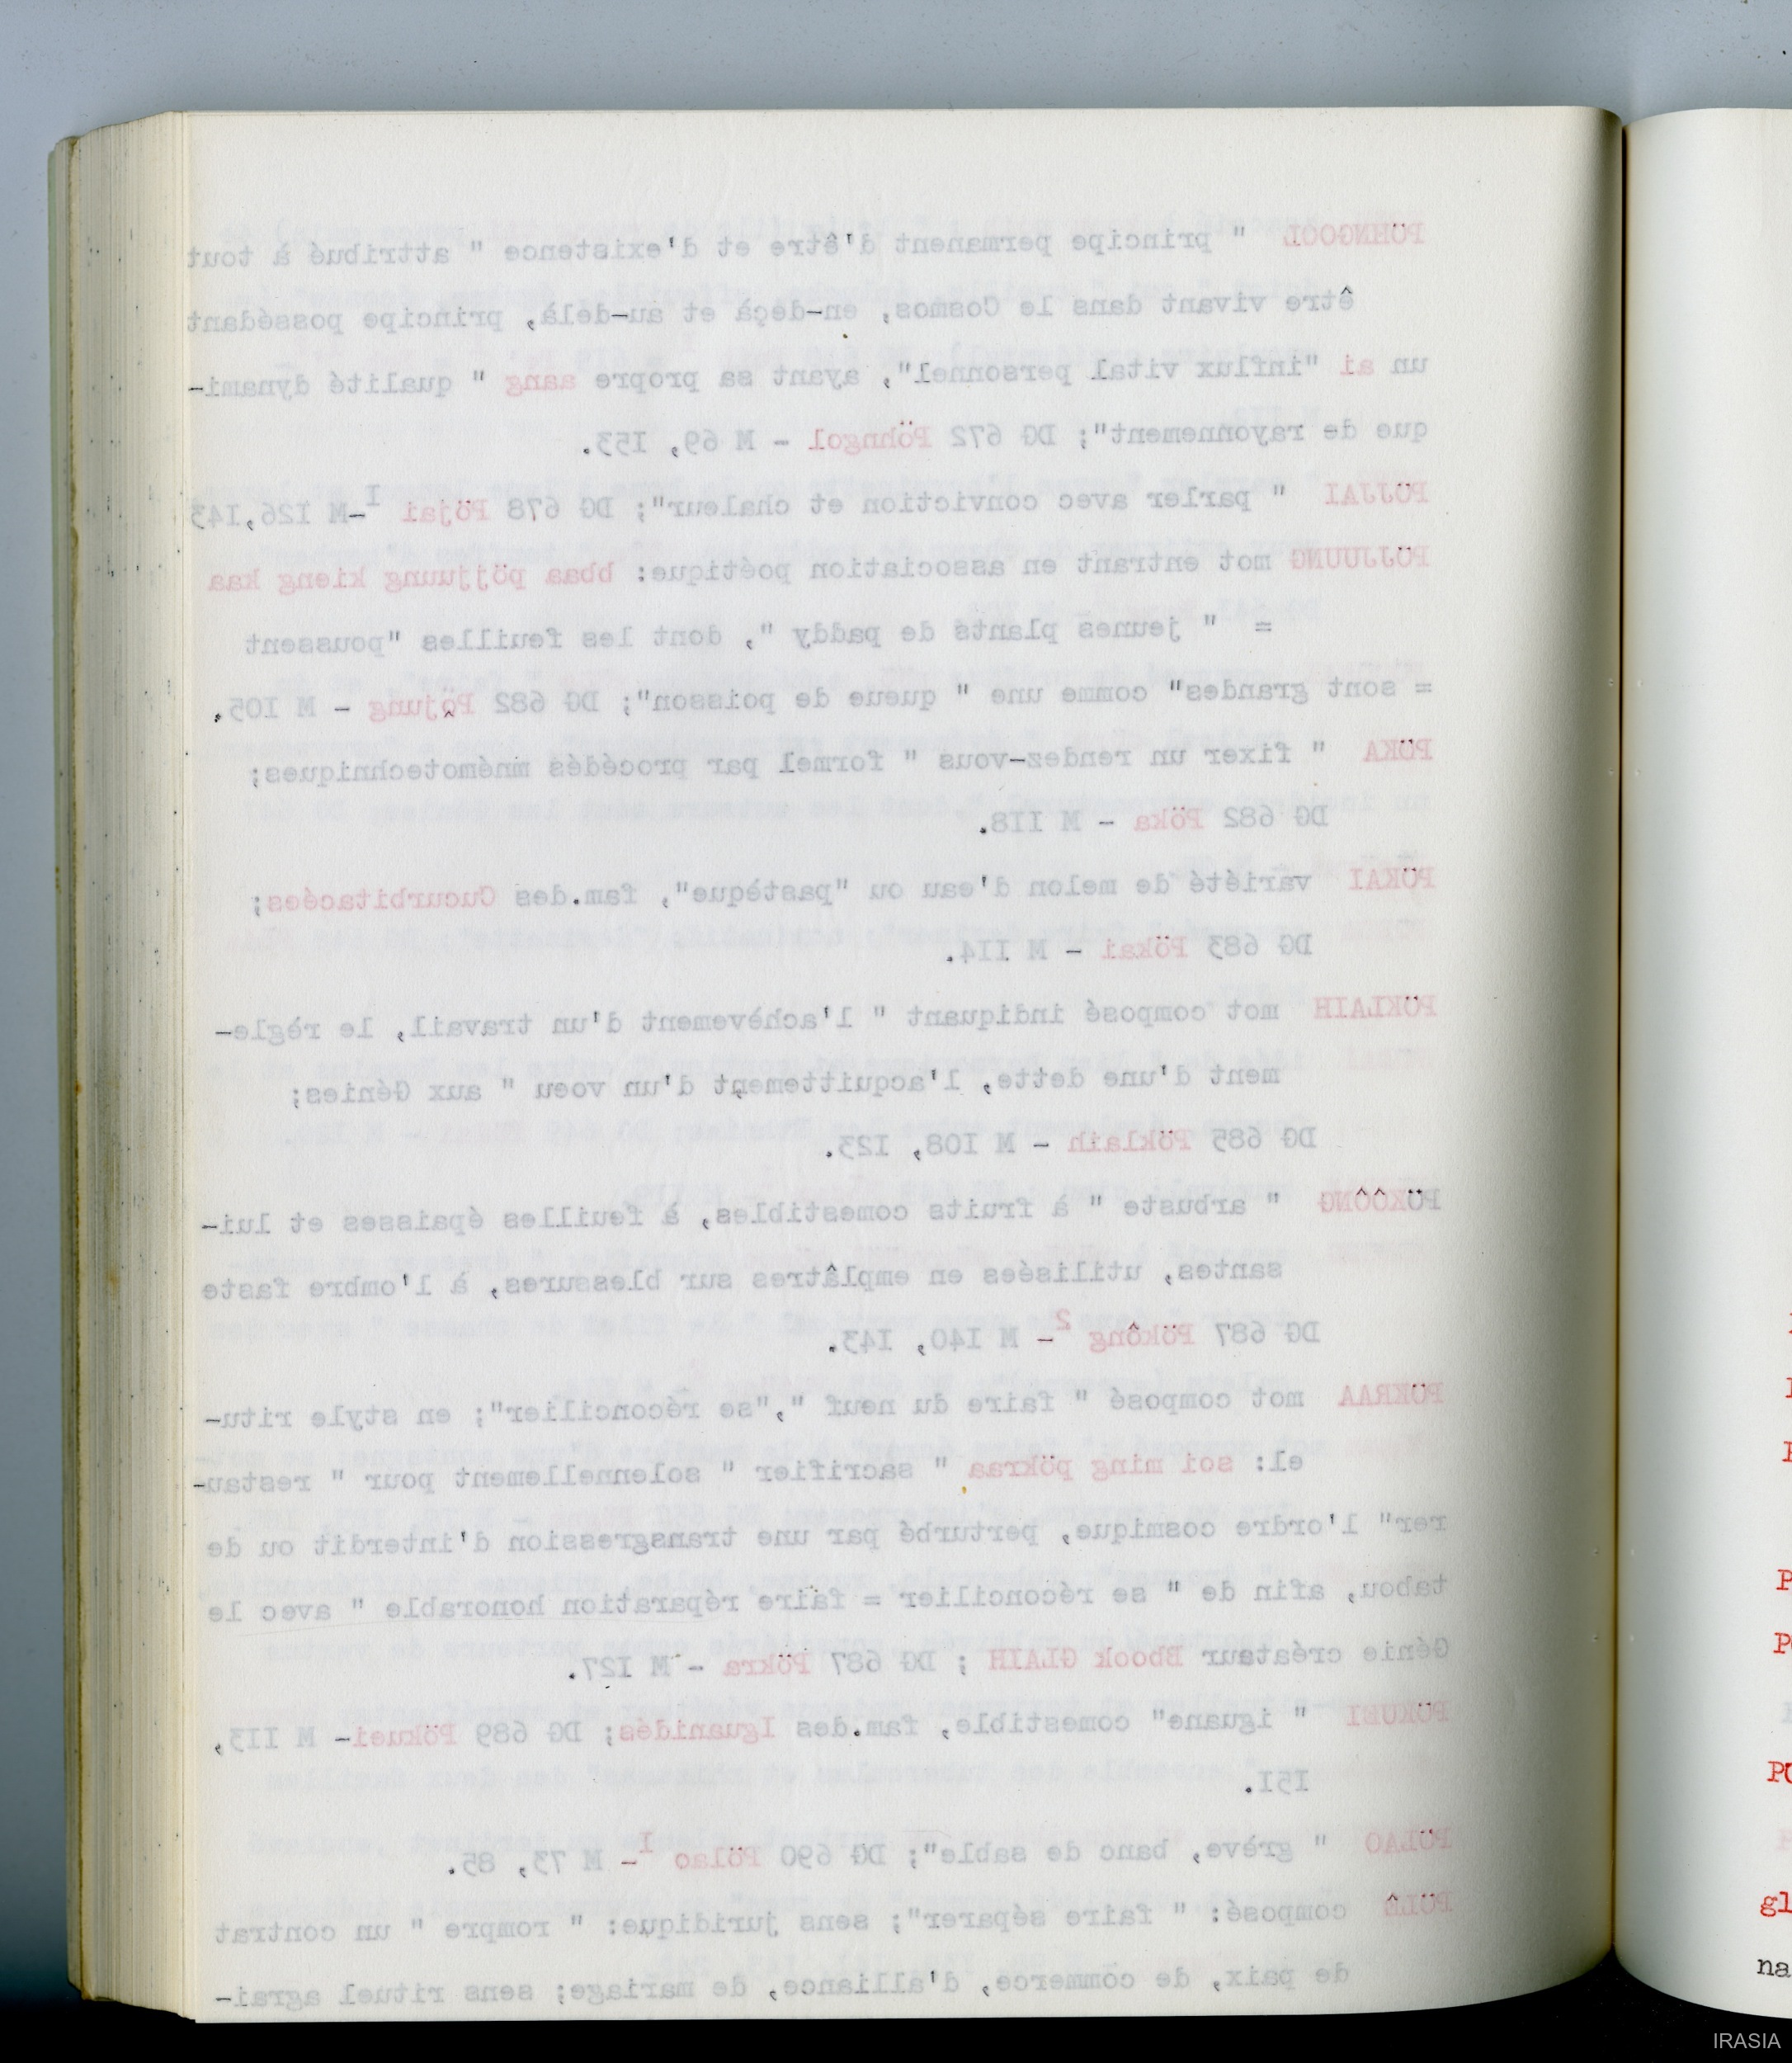 PÖHNGOOL " principe permanent d'être et d'existence " attribué à tout
être vivant dans le Cosmos, en-deçà et au-delà, principe possédant
un ai "influx vital personnel", ayant sa propre aang " qualité dynami-
que de rayonnement"; DG 672 Pöhngol - M 69, I53.
PÖJJAI " parler avec conviction et chaleur"; DG 678 Pöjai I-M I26,I43
PÖJJUUNG mot entrant en association poétique: bbaa pöjjuung kieng kaa
= " jeunes plants de paddy ", dont les feuilles "poussent
= sont grandes" comme une " queue de poisson"; DG 682 Pöjung - M I05.
PÖKA " fixer un rendez-vous " formel par procédés mnémotechniques;
DG 682 Pöka - M II8.
PÖKAI variété de melon d'eau ou "pastèque", fam.des Cucurbitacées;
DG 683 Pökai - M II4.
PÖKLAIH mot composé indiquant " l'achèvement d'un travail, le règle-
ment d'une dette, l'acquittement d'un voeu " aux Génies;
DG 685 Pöklaih - M I08, I23.
PÖKÔÔNG " arbuste " à fruits comestibles, à feuilles épaisses et lui-
santes, utilisées en emplâtres sur blessures, à l'ombre faste
DG 687 Pökông 2- M I40, I43.
PÖKRAA mot composé " faire du neuf ","se réconcilier"; en style ritu-
el: soi ming pökraa " sacrifier " solennellement pour " restau-
rer" l'ordre cosmique, perturbé par une transgression d'interdit ou de
tabou, afin de " se réconcilier = faire réparation honorable " avec le
Génie créateur Bbook GLAIH ; DG 687 Pökra - M I27.
PÖKUEI " iguane" comestible, fam.des Iguanidés; DG 689 Pökuei- M II3,
I5I.
PÖLAO " grève, banc de sable"; DG 690 Pölao I- M 73, 85.
PÖLÊ composé: " faire séparer"; sens juridique: " rompre " un contrat
de paix, de commerce, d'alliance, de mariage; sens rituel agrai-
P
PÖ
gl
na
IRASIA